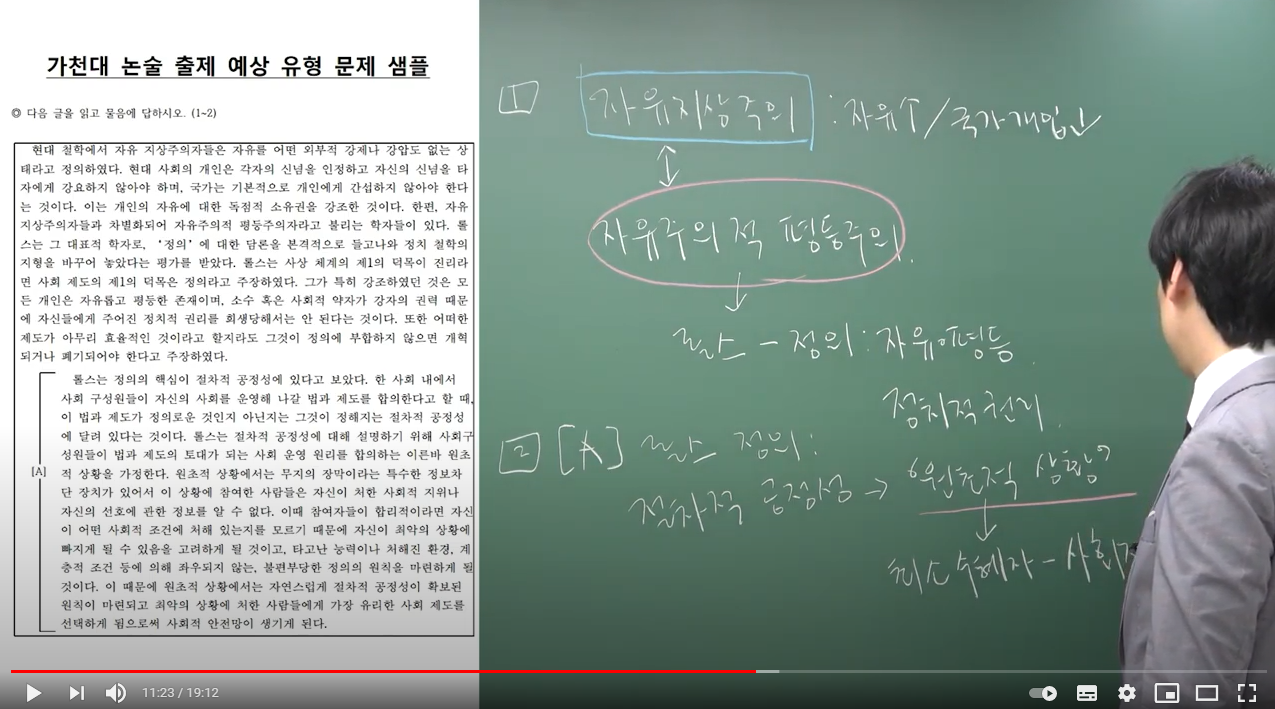 가천대 논술 출제 예상 유형 문제 샘플
◎ 다음 글을 읽고 물음에 답하시오. (1~2)
현대 철학에서 자유 지상주의자들은 자유를 어떤 외부적 강제나 강압도 없는 상
태라고 정의하였다. 현대 사회의 개인은 각자의 신념을 인정하고 자신의 신념을 타
자에게 강요하지 않아야 하며, 국가는 기본적으로 개인에게 간섭하지 않아야 한다
는 것이다. 이는 개인의 자유에 대한 독점적 소유권을 강조한 것이다. 한편, 자유
지상주의자들과 차별화되어 자유주의적 평등주의자라고 불리는 학자들이 있다. 롤
스는 그 대표적 학자로, ‘정의’에 대한 담론을 본격적으로 들고나와 정치 철학의
지형을 바꾸어 놓았다는 평가를 받았다. 롤스는 사상 체계의 제1의 덕목이 진리라
면 사회 제도의 제1의 덕목은 정의라고 주장하였다. 그가 특히 강조하였던 것은 모
든 개인은 자유롭고 평등한 존재이며, 소수 혹은 사회적 약자가 강자의 권력 때문
에 자신들에게 주어진 정치적 권리를 희생당해서는 안 된다는 것이다. 또한 어떠한
제도가 아무리 효율적인 것이라고 할지라도 그것이 정의에 부합하지 않으면 개혁
되거나 폐기되어야 한다고 주장하였다.
롤스는 정의의 핵심이 절차적 공정성에 있다고 보았다. 한 사회 내에서
사회 구성원들이 자신의 사회를 운영해 나갈 법과 제도를 합의한다고 할 때,
이 법과 제도가 정의로운 것인지 아닌지는 그것이 정해지는 절차적 공정성
에 달려 있다는 것이다. 롤스는 절차적 공정성에 대해 설명하기 위해 사회구
성원들이 법과 제도의 토대가 되는 사회 운영 원리를 합의하는 이른바 원초
적 상황을 가정한다. 원초적 상황에서는 무지의 장막이라는 특수한 정보차
[A]
단 장치가 있어서 이 상황에 참여한 사람들은 자신이 처한 사회적 지위나
자신의 선호에 관한 정보를 알 수 없다. 이때 참여자들이 합리적이라면 자신
이 어떤 사회적 조건에 처해 있는지를 모르기 때문에 자신이 최악의 상황에
빠지게 될 수 있음을 고려하게 될 것이고, 타고난 능력이나 처해진 환경, 계
층적 조건 등에 의해 좌우되지 않는, 불편부당한 정의의 원칙을 마련하게 될
것이다. 이 때문에 원초적 상황에서는 자연스럽게 절차적 공정성이 확보된
원칙이 마련되고 최악의 상황에 처한 사람들에게 가장 유리한 사회 제도를
선택하게 됨으로써 사회적 안전망이 생기게 된다.
1 자유지상주의 : 자유↑/국가개입
자유주의적 평등주의.
롤스 - 정의 : 자유 평등
정치적 권리.
2 [A] 롤스 정의 :
절차적 공정성 → ‘원초적 상황’
최소수혜자 - 사회
11:23 / 19:12